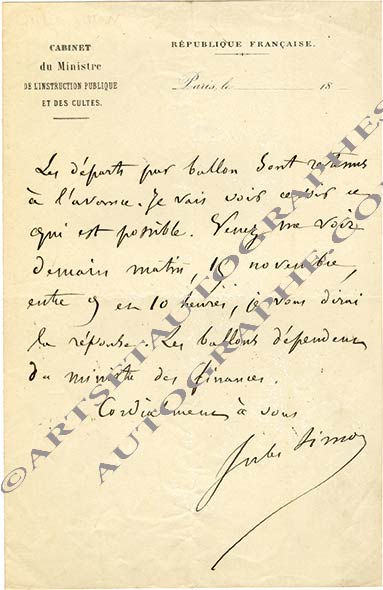 CABINET
du Ministre
DE L'INSTRUCTION PUBLIQUE
ET DES CULTES.
RÉPUBLIQUE FRANÇAISE.
Paris, le 18
Les départs par ballon sont retenus
à l'avance. Je vais voir ce soir ce
qui est possible. Venez me voir
demain matin, 16 novembre,
entre 9 et 10 heures, je vous dirai
la réponse. Les ballons dépendent
du ministre des finances.
Cordialement à vous
Jules Simon
©ARTSETAUTOGRAPHES
AUTOGRAPHE.CO